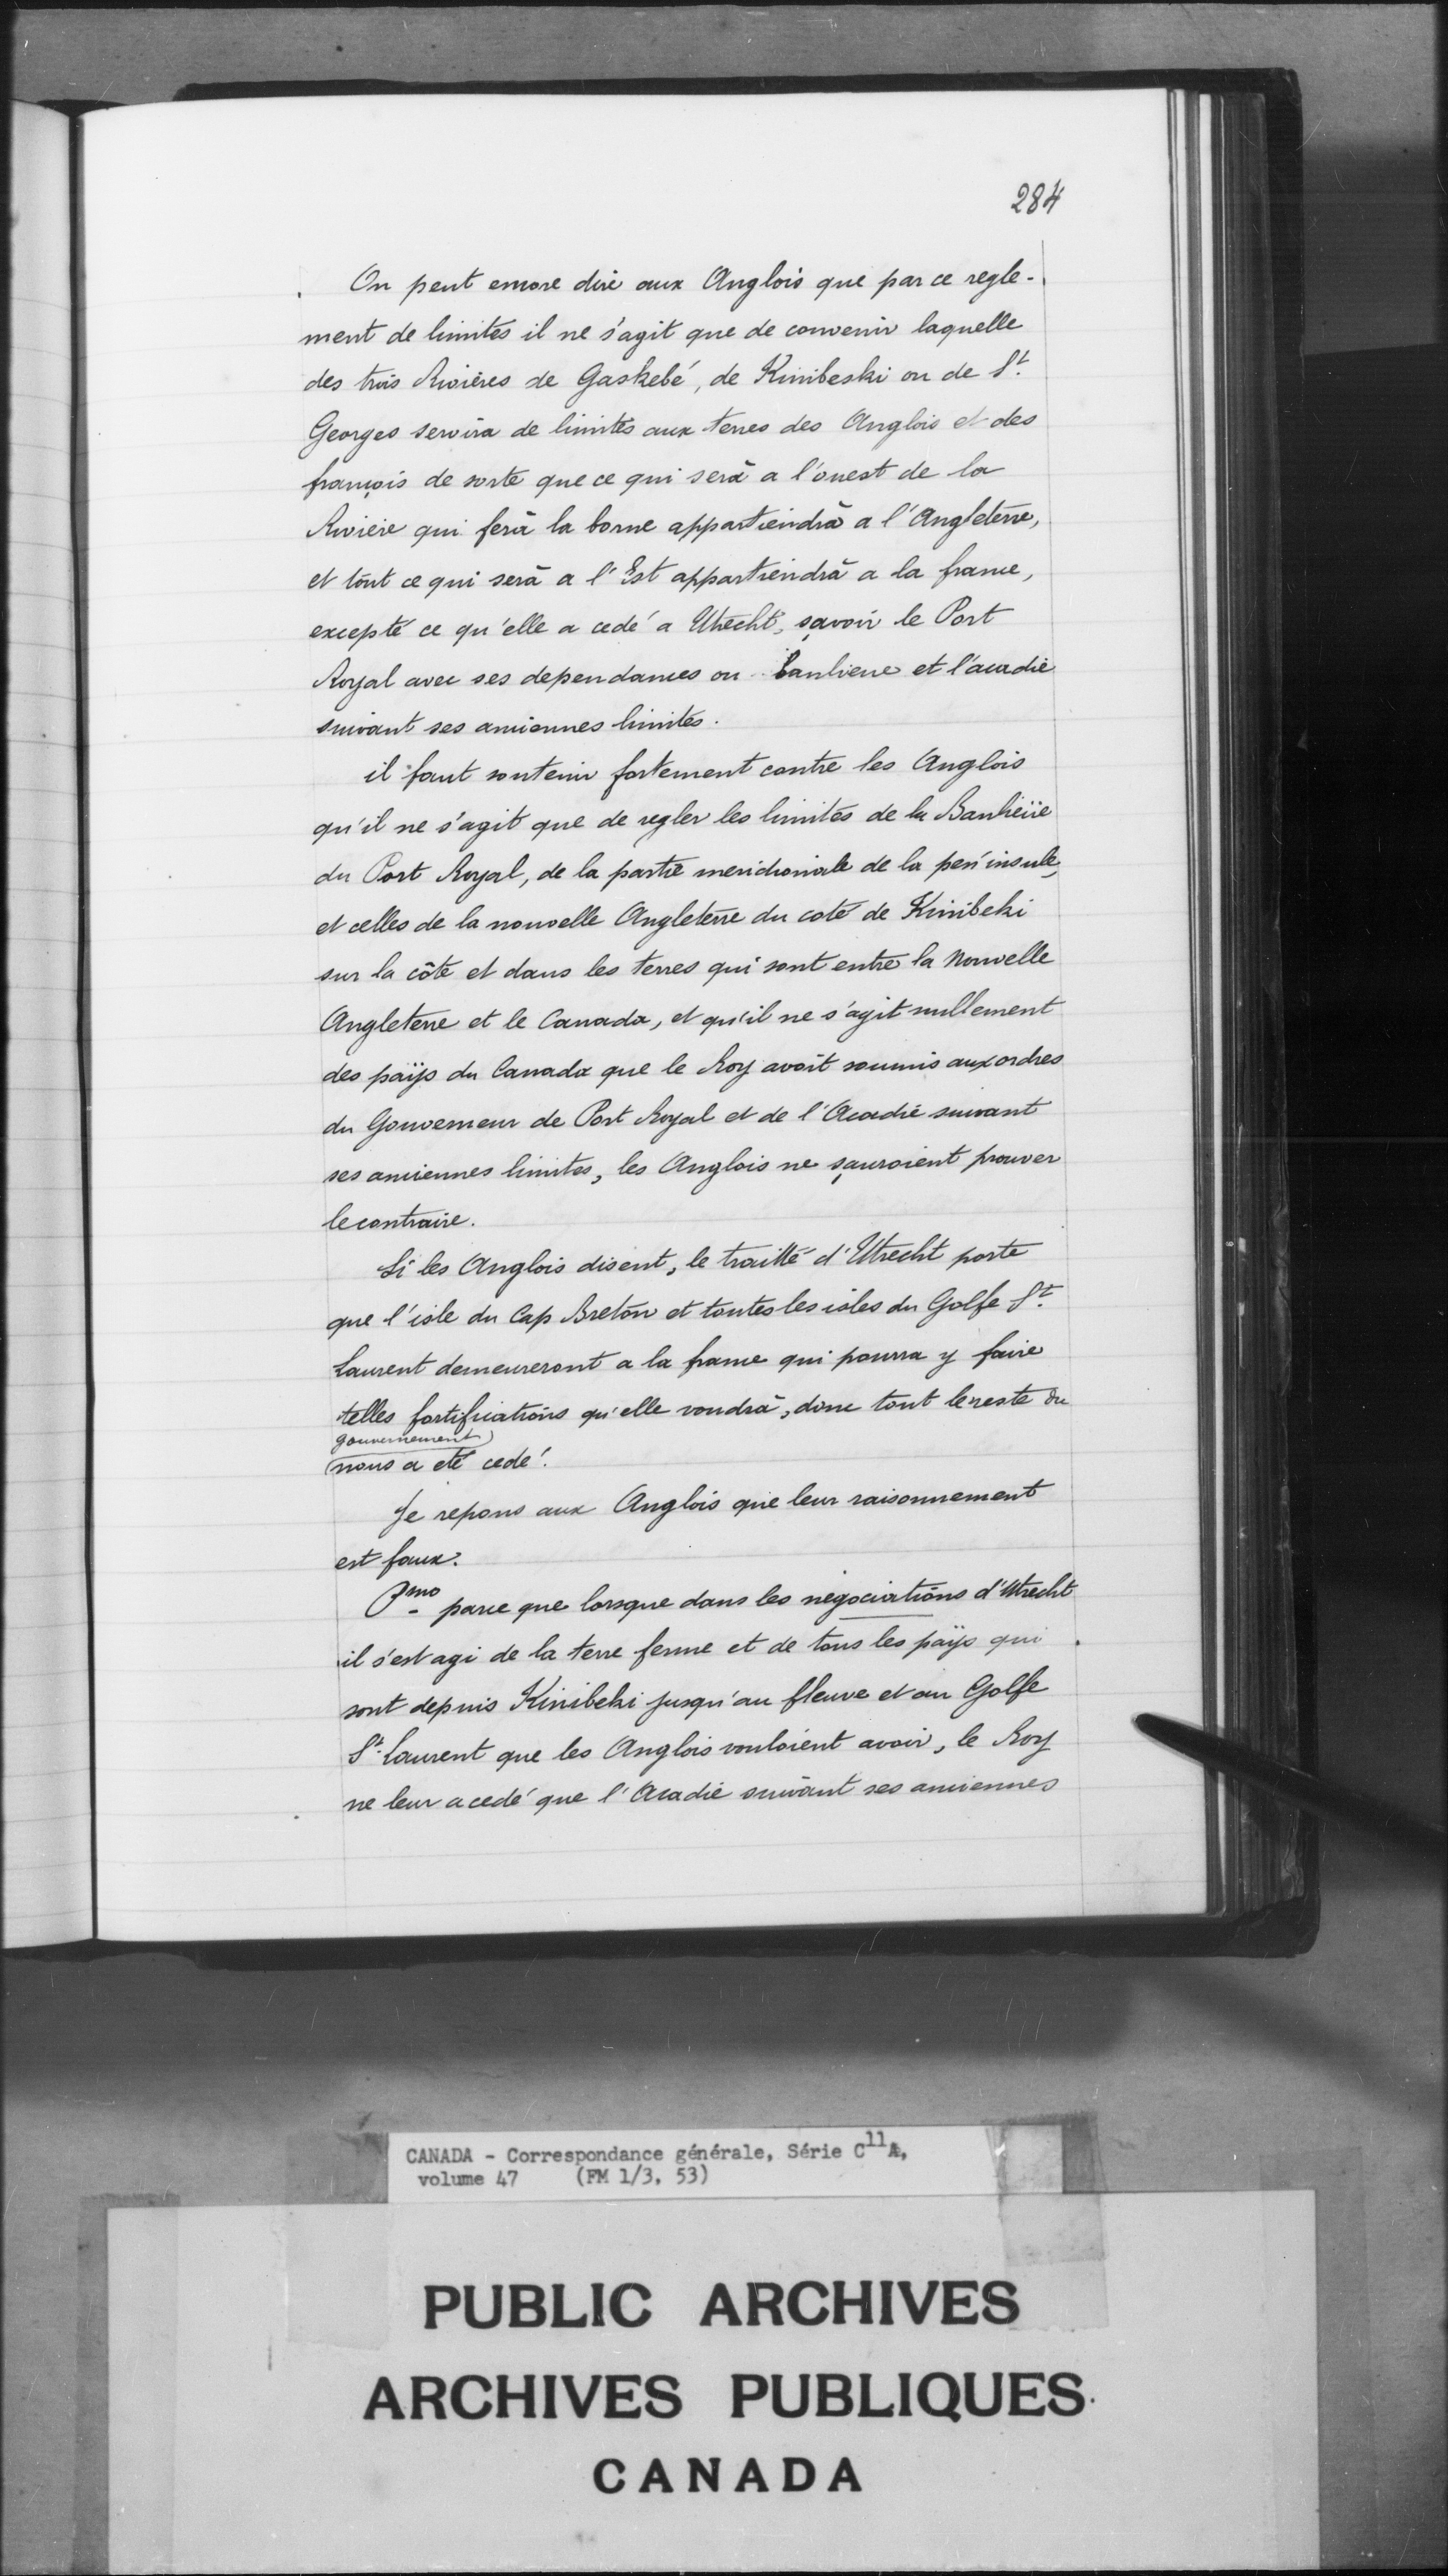 284
On peut encore dire aux Anglois que par ce regle-
ment de limites il ne s'agit que de convenir laquelle
des trois Rivières de Gaskebé, de Kinibeski ou de St.
Georges servira de limites aux terres des Anglois et des
françois de sorte que ce qui serà a l'ouest de la
Riviere qui ferà la borne appartiendrà a l'Angleterre,
et tout ce qui serà a l'Est appartiendrà a la france,
excepté ce qu'elle a cedé a Utrecht, sçavoir le Port
Royal avec ses dependances ou banlieue et l'acadie
suivant ses anciennes limites.
il faut soutenir fortement contre les Anglois
qu'il ne s'agit que de regler les limites de la Banlieüe
du Port Royal, de la partie meridionale de la peninsule,
et celles de la nouvelle Angleterre du coté de Kinibeki
sur la côte et dans les terres qui sont entre la Nouvelle
Angleterre et le Canada, et qu'il ne s'agit nullement
des païs du Canada que le Roy avoit soumis aux ordres
du Gouverneur de Port Royal et de l'Acadie suivant
ses anciennes limites, les Anglois ne sçauroient prouver
le contraire.
Si les Anglois disent, le traitté d'Utrecht porte
que l'isle du Cap Breton et toutes les isles du Golfe St.
Laurent demeureront a la france qui pourra y faire
telles fortifications qu'elle voudrà, donc tout le reste du
gouvernement
nous a eté cedé.
Je repons aux Anglois que leur raisonnement
est faux.
Pmo parce que lorsque dans les negociations d'Utrecht
il s'est agi de la terre ferme et de tous les païs qui
sont depuis Kinibeki jusqu'au fleuve et au Golfe
St. Laurent que les Anglois vouloient avoir, le Roy
ne leur a cedé que l'Acadie suivant ses anciennes
CANADA - Correspondance générale, Série C11A,
volume 47 (FM 1/3, 53)
PUBLIC ARCHIVES
ARCHIVES PUBLIQUES
CANADA